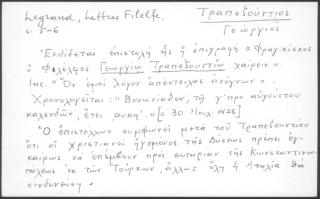 Legrand, Lettres Filelfe.
Τραπεζούντιος
σ. 5-6
Γεώργιος
Ἐκδίδεται ἐπιστολὴ ἧς ἡ ἐπιγραφὴ «Φραγκίσκος
ὁ Φιλέλφος Γεωργίῳ Τραπεζουντίῳ χαίρειν».
Inc. "Ὃν ἐμοὶ λόγον ἀπέστειλας ἀνέγνων".
Χρονολογεῖται: "Βονωνίαθεν, τῇ γ' πρὸ αὐγούστου
καλενδῶν, ἔτει, αυκη'." [= 30 Ἰουλ. 1428]
Ὁ ἐπιστέλλων συμφωνεῖ μετὰ τοῦ Τραπεζουντίου
ὅτι οἱ Χριστιανοὶ ἡγεμόνες τῆς Δύσεως πρέπει ἐγ-
καίρως νὰ σπεύσουν πρὸς σωτηρίαν τῆς Κωνσταντινου-
πόλεως ἐκ τῶν Τούρκων, ἄλλως ὅλη ἡ Ἰταλία θὰ
κινδυνεύσῃ.